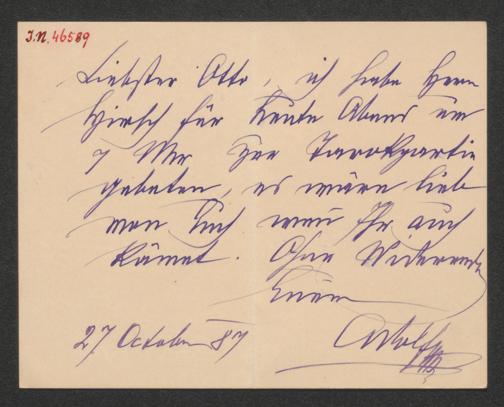 I.N. 46589
Liebster Otto, ich habe Herrn
Hirsch für heute Abend um
7 Uhr zur Tarokpartie
gebeten, es wäre lieb
von Euch wenn Ihr auch
kämet. Ohne Widerrede
Euer
Adolf
27 October 87